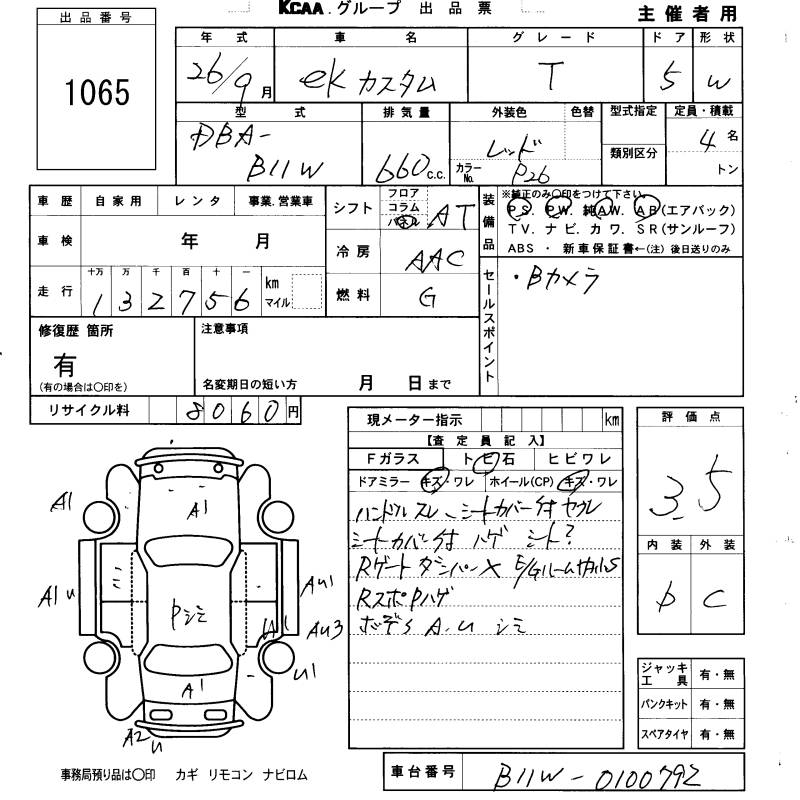 KCAA.グループ 出品票
主催者用
出品番号
1065
年式 車名 グレード ドア 形状
26/9月 ekカスタム T 5 W
型式 排気量 外装色 色替 型式指定 定員・積載
DBA-
B11W 660c.c. レッド カラーNo. P26 類別区分 4名 トン
車歴 自家用 レンタ 事業.営業車
車検 年 月
走行 十万 万 千 百 十 一
132756 km マイル
シフト フロア コラム パネル AT
冷房 AAC
燃料 G
装備品
※純正のみ○印をつけて下さい。
PS. PW. 純AW. AB(エアバック)
TV. ナビ. カワ. SR(サンルーフ)
ABS ・ 新車保証書←(注) 後日送りのみ
セールスポイント
・Bカメラ
修復歴 箇所
有
(有の場合は○印を)
注意事項
名変期日の短い方 月 日まで
リサイクル料 8060円
現メーター指示 km
【査定員記入】
Fガラス トビ石 ヒビワレ
ドアミラー キズ・ワレ ホイール(CP) キズ・ワレ
ハンドルスレ シートカバー付
シートカバー付 ハゲ シート?
Rゲート ダンパー× E/Gルーム
RスポPハゲ
A.U シミ
評価点
3.5
内装 外装
D C
ジャッキ工具 有・無
パンクキット 有・無
スペアタイヤ 有・無
A1
A1
A1U
AU1
Pシミ
A1
AU3
U1
A1
A2U
事務局預り品は○印 カギ リモコン ナビロム
車台番号 B11W-0100792